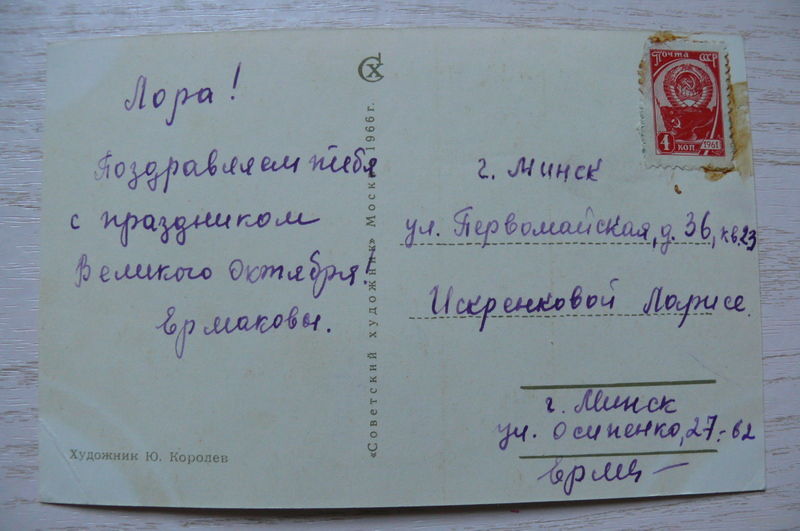 Лора!
Поздравляем тебя
с праздником
Великого Октября!
Ермаковы.
Художник Ю. Королев
СХ
«Советский художник» Москва 1966 г.
Почта СССР
4 коп. 1961
г. Минск
ул. Первомайская, д. 36, кв. 23
Искренковой Ларисе
г. Минск
ул. Осипенко, 27-62